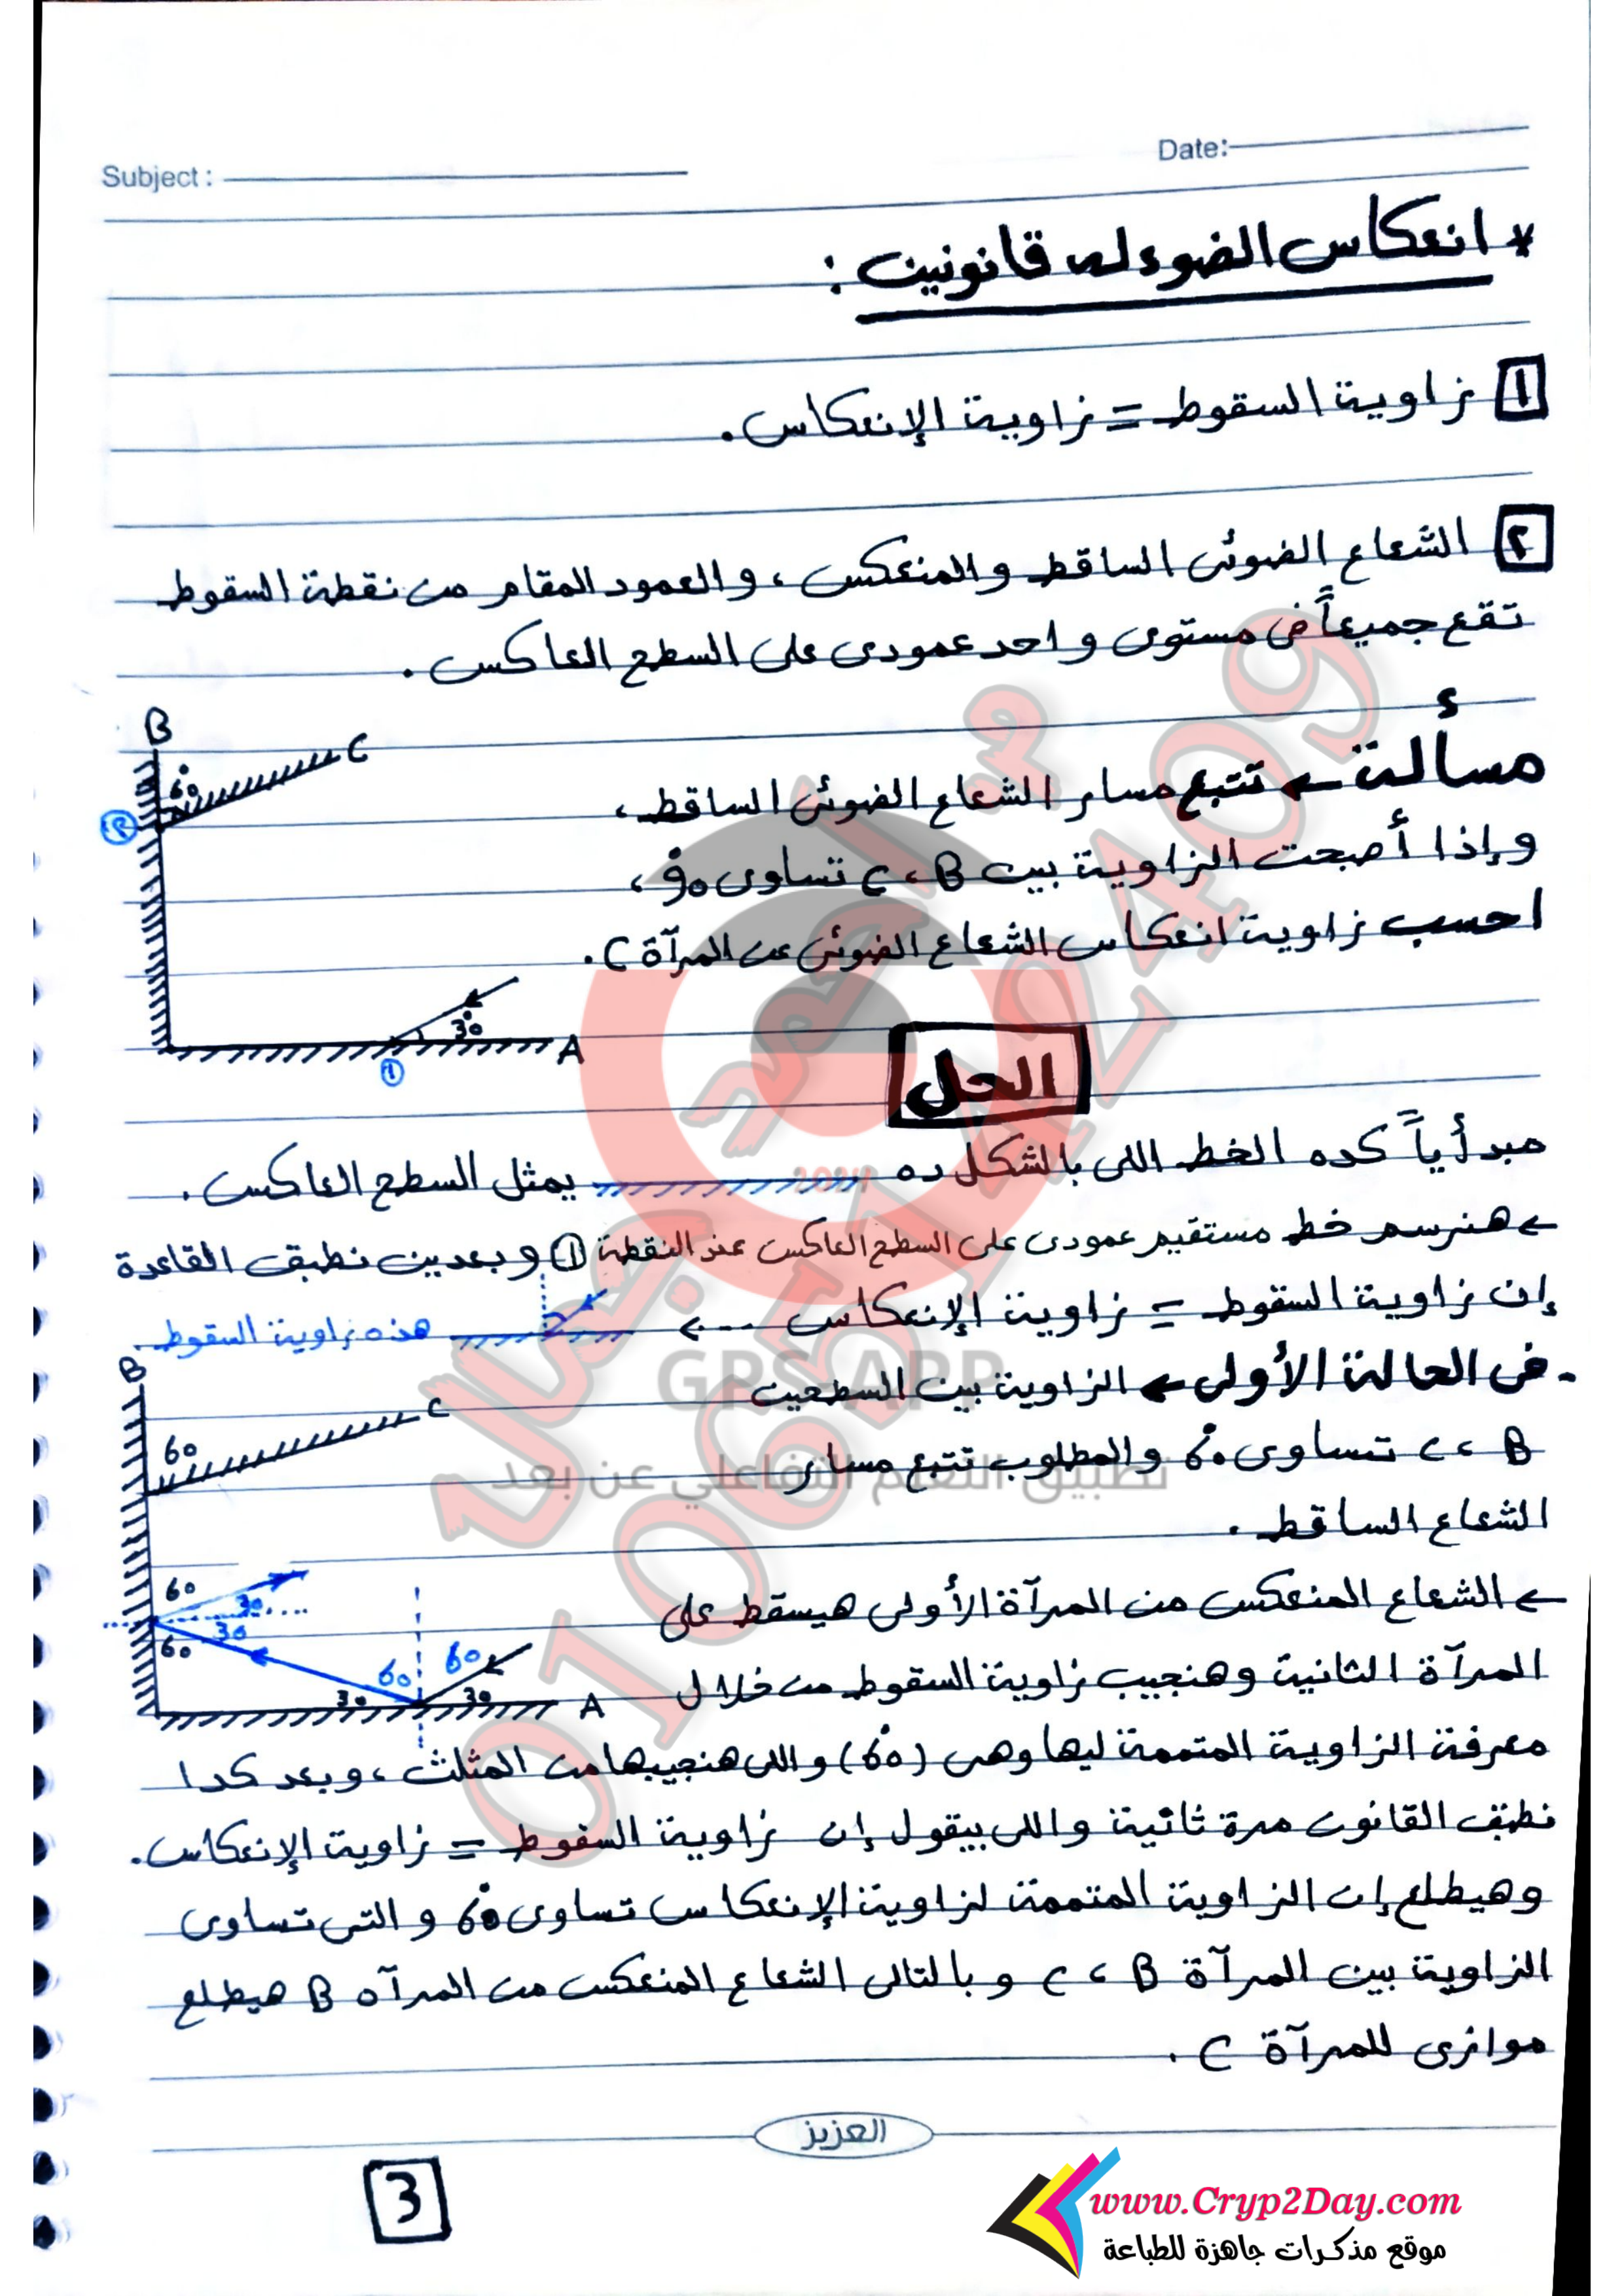 Date:
Subject :
* انعكاس الضوء له قانونين :
١ زاوية السقوط = زاوية الإنعكاس.
٢ الشعاع الضوئى الساقط والمنعكس، والعمود المقام من نقطة السقوط
تقع جميعاً فى مستوى واحد عمودى على السطح العاكس.
مسألة ← تتبع مسار الشعاع الضوئى الساقط،
وإذا أصبحت الزاوية بين C ، B تساوى 90°،
احسب زاوية انعكاس الشعاع الضوئى عن المرآة C.
B
C
60°
٢
30°
A
١
الحل
مبدأياً كده الخط اللى بالشكل ده يمثل السطح العاكس.
← هنرسم خط مستقيم عمودى على السطح العاكس عند النقطة ① وبعدين نطبق القاعدة
إن زاوية السقوط = زاوية الإنعكاس ---> هذه زاوية السقوط
- فى الحالة الأولى ← الزاوية بين السطحين
C ، B تساوى 60° والمطلوب تتبع مسار
الشعاع الساقط.
← الشعاع المنعكس من المرآة الأولى هيسقط على
المرآة الثانية وهنجيب زاوية السقوط من خلال
معرفة الزاوية المتممة ليها وهى (60°) واللى هنجيبها من المثلث، وبعد كدا
نطبق القانون مرة ثانية واللى بيقول إن زاوية السقوط = زاوية الإنعكاس.
وهيطلع إن الزاوية المتممة لزاوية الإنعكاس تساوى 60° والتى تساوى
الزاوية بين المرآة C ، B وبالتالى الشعاع المنعكس من المرآه B هيطلع
موازى للمرآة C.
B
C
60
60
30
30
60
60
60
30
30
A
العزيز
3
www.Cryp2Day.com
موقع مذكرات جاهزة للطباعة
GPS APP
تطبيق التعلم التفاعلي عن بعد